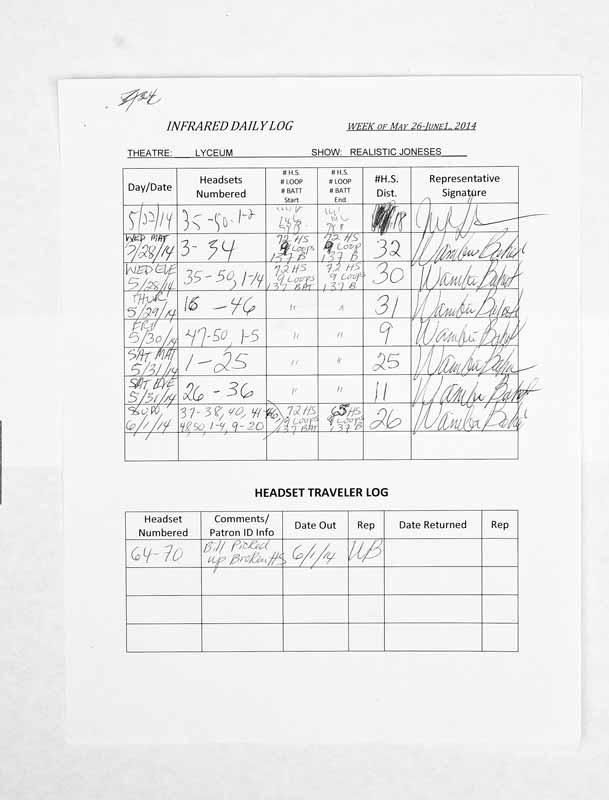 INFRARED DAILY LOG WEEK OF MAY 26-JUNE1, 2014
THEATRE: LYCEUM SHOW: REALISTIC JONESES
Day/Date Headsets Numbered # H.S. # LOOP # BATT Start # H.S. # LOOP # BATT End #H.S. Dist. Representative Signature
35-50, 1-2 18
WED MAT 5/28/14 3-34 72 HS 9 Loops 137 B 72 HS 9 Loops 137 B 32
WED EVE 5/28/14 35-50, 1-14 72 HS 9 Loops 137 BAT 72 HS 9 Loops 137 B 30
THUR 5/29/14 16-46 " " 31
FRI 5/30/14 47-50, 1-5 " " 9
SAT MAT 5/31/14 1-25 " " 25
SAT EVE 5/31/14 26-36 " " 11
SUN 6/1/14 37-38, 40, 41-46, 48,50, 1-4, 9-20 72 HS 9 Loops 137 BAT 65 HS 9 Loops 137 B 26
HEADSET TRAVELER LOG
Headset Numbered Comments/ Patron ID Info Date Out Rep Date Returned Rep
64-70 Bill Picked up Broken HS 6/1/14 WB